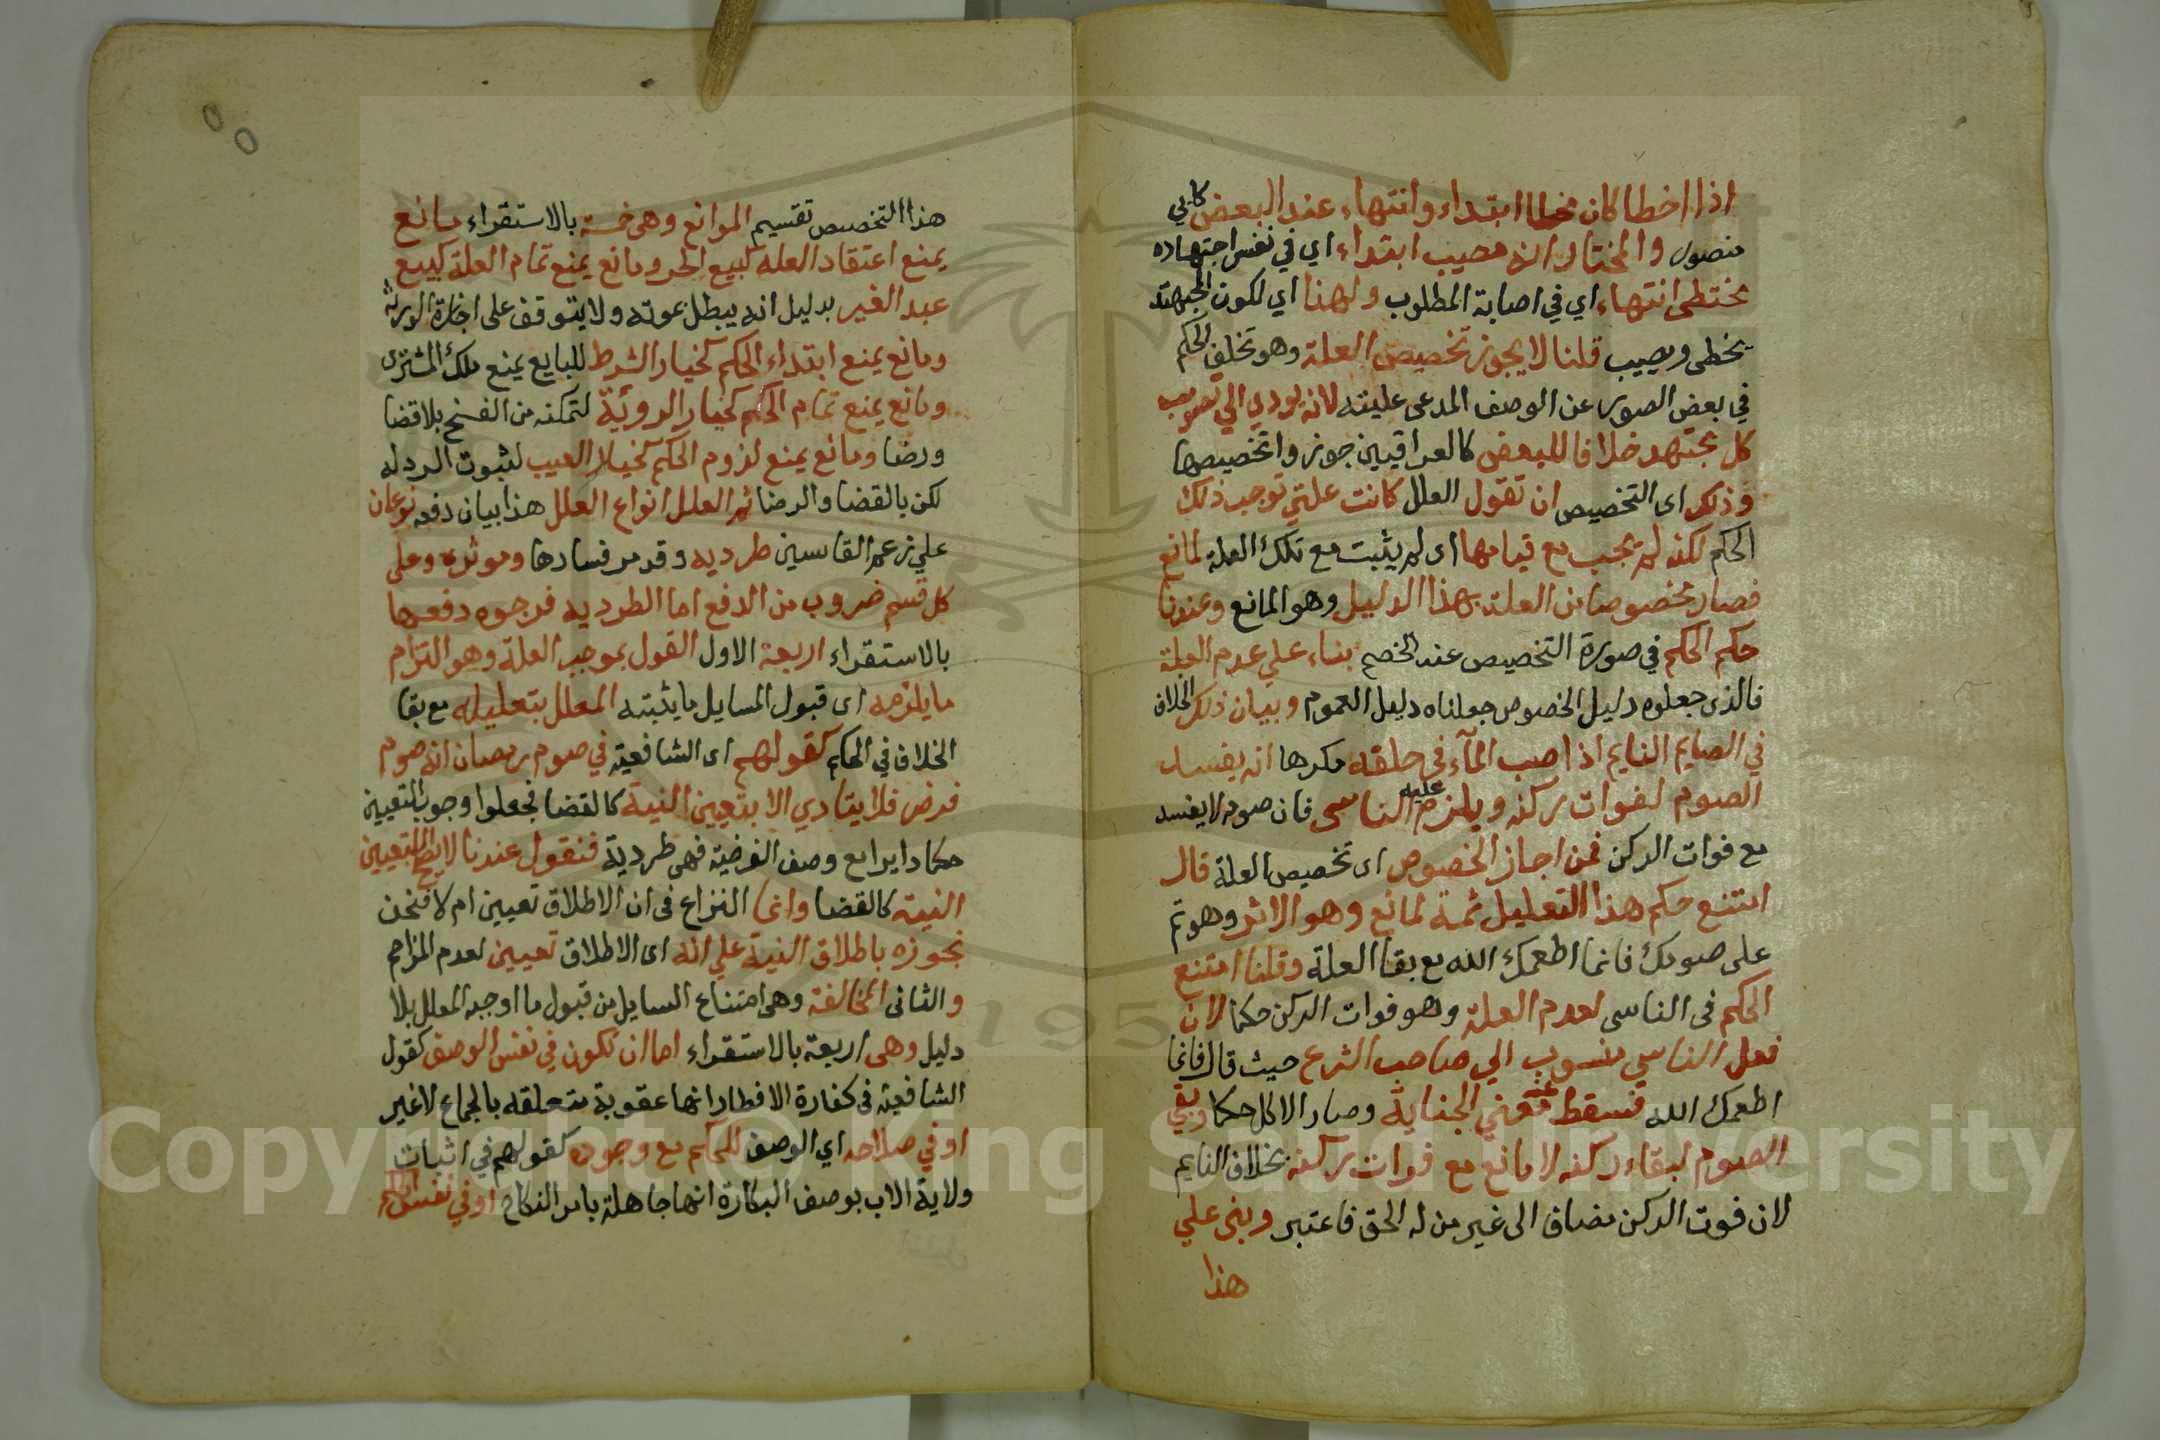 اذا اخطا كان مخطا ابتداء وانتهاء عند البعض كابي
منصور والمختار انه مصيب ابتداء اي في نفس اجتهاده
مخطئ انتهاء اي في اصابة المطلوب ولهذا اي لكون المجتهد
يخطى ويصيب قلنا لا يجوز تخصيص العلة وهو تخلف الحكم
في بعض الصور عن الوصف المدعى عليته لانه يودي الي تصويب
كل مجتهد خلافا للبعض كالعراقيين جوزوا تخصيصها
وذلك اى التخصيص ان تقول العلل كانت علتي توجب ذلك
الحكم لكنه لم تجب مع قيامها اى لم يثبت مع تلك العلة لمانع
فصار مخصوصا من العلة بهذا الدليل وهو المانع وعندنا
حكم الحكم في صورة التخصيص عند الخصم بناء علي عدم العلة
فالذى جعلوه دليل الخصوص جعلناه دليل العموم وبيان ذلك الخلاف
في الصايم النايم اذا صب المآء فى حلقه مكرها انه يفسد
الصوم لفوات ركنه ويلزم عليه الناسى فان صومه لا يفسد
مع فوات الركن فمن اجاز الخصوص اى تخصيص العلة قال
امتنع حكم هذا التعليل ثمة لمانع وهو الاثر وهو تم
على صومك فانما اطعمك الله مع بقا العلة وقلنا امتنع
الحكم فى الناسى لعدم العلة وهو فوات الركن حكما لان
فعل الناسي منسوب الي صاحب الشرع حيث قال فانما
اطعمك الله فسقط عنه معني الجناية وصار الاكل حكما وبقي
الصوم لبقاء ركنه لا مانع مع فوات ركنه بخلاف النايم
لان فوت الركن مضاف الى غير من له الحق فاعتبر وبنى علي
هذا
هذا التخصيص تقسيم الموانع وهى خمسة بالاستقراء مانع
يمنع اعتقاد العله كبيع الحر ومانع يمنع تمام العلة كبيع
عبد الغير بدليل انه يبطل بموته ولا يتوقف على اجازة الورثة
ومانع يمنع ابتداء الحكم كخيار الشرط للبايع يمنع ملك المشترى
ومانع يمنع تمام الحكم كخيار الروية لتمكنه من الفسخ بلا قضا
ورضا ومانع يمنع لزوم الحكم كخيار العيب لثبوت الرد له
لكن بالقضا والرضا ثم العلل انواع العلل هذا بيان دفعه نوعان
علي زعم القايسين طرديه وقد مر فسادها وموثره وعلى
كل قسم ضروب من الدفع اما الطرديه فوجوه دفعها
بالاستقراء اربعة الاول القول بموجب العلة وهو التزام
ما يلزمه اى قبول المسايل ما يثبته المعلل بتعليله مع بقا
الخلاف في الحكم كقولهم اى الشافعية في صوم رمضان انه صوم
فرض فلا يتادي الا بتعيين النية كالقضا فجعلوا وجوب التعيين
حكما دايرا مع وصف الفرضية فهى طردية فنقول عندنا لا يصح الا بتعيين
النيه كالقضا وانما النزاع فى ان الاطلاق تعيين ام لا فنحن
نجوزه باطلاق النية علي انه اى الاطلاق تعيين لعدم المزاحم
والثانى المخالفة وهى امتناع السايل من قبول ما اوجبه المعلل بلا
دليل وهى اربعة بالاستقراء اما ان تكون في نفس الوصف كقول
الشافعية فى كفارة الافطار انها عقوبة متعلقه بالجماع لا غير
او في صلاحه اي الوصف للحكم مع وجوده كقولهم في اثبات
ولاية الاب بوصف البكارة انها جاهلة بامر النكاح او في نفس الحكم